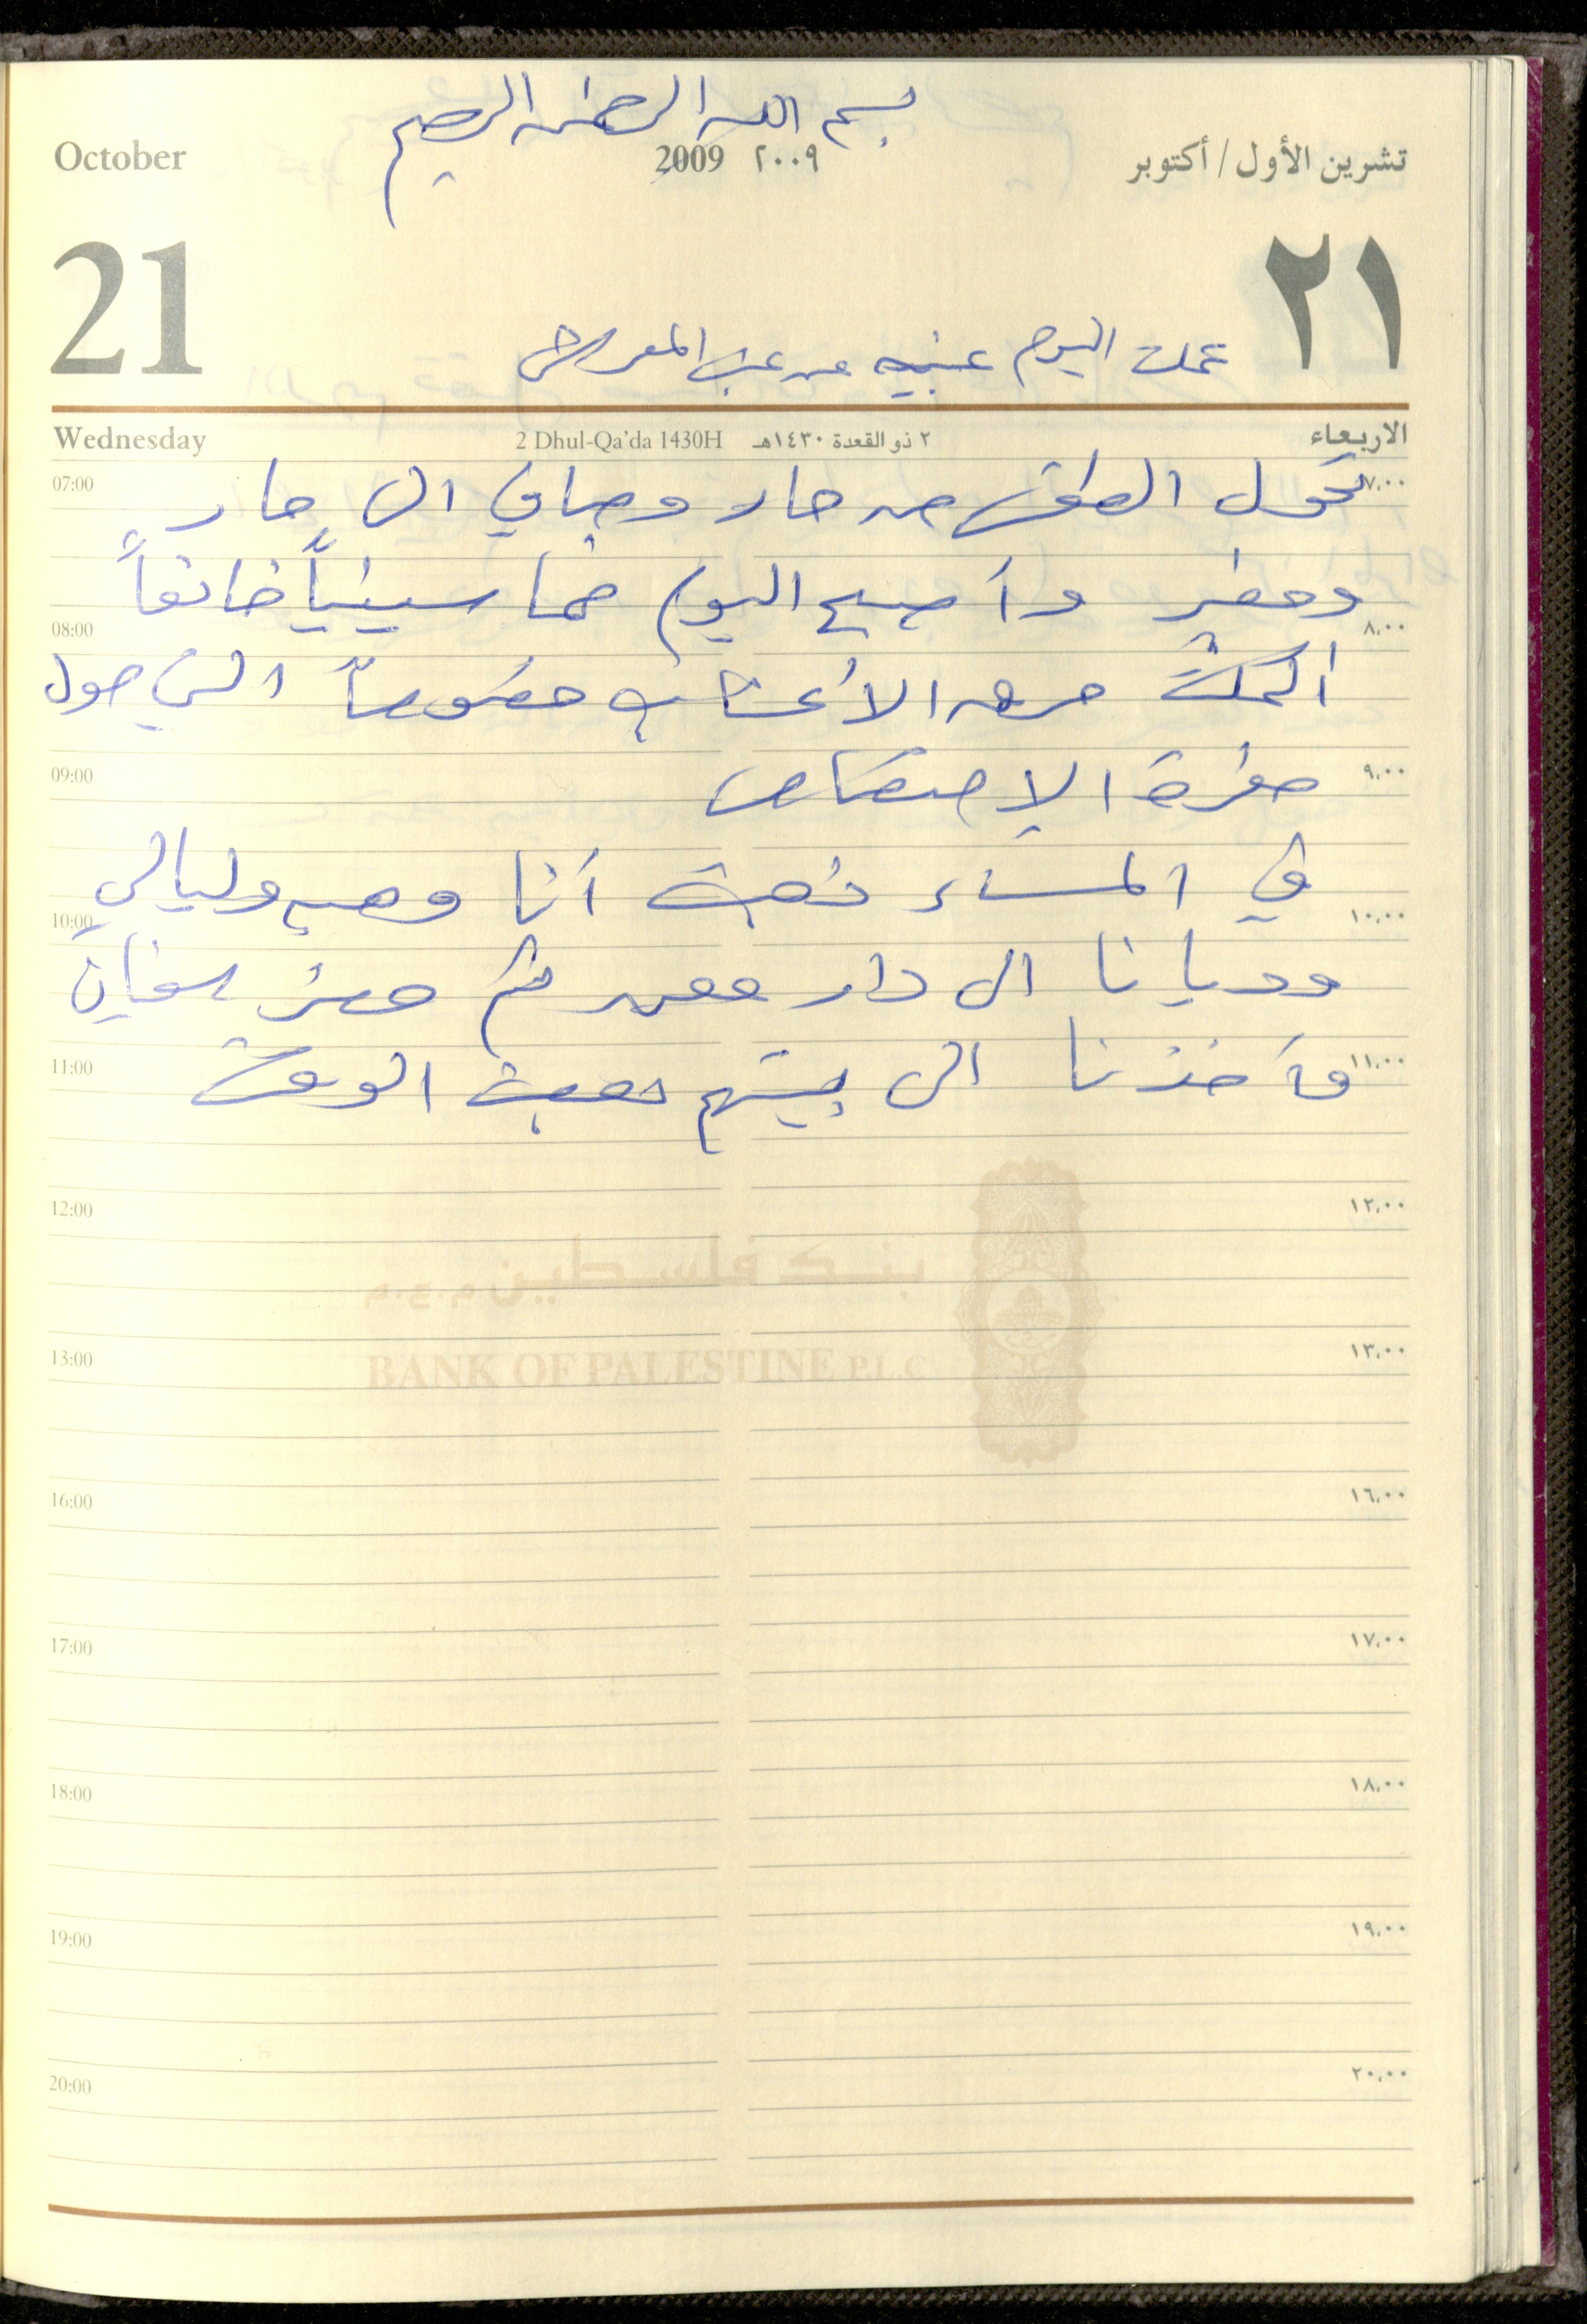 بسم الله الرحمن الرحيم
October 2009 ٢٠٠٩ تشرين الأول / أكتوبر
21 ٢١
عملت اليوم عنبيه من عنب المعرش
Wednesday 2 Dhul-Qa'da 1430H ٢ ذو القعدة ١٤٣٠هـ الاربعاء
07:00 ٧,٠٠
تحول الطقس من حار وصافي الى حار
ومغبر وأصبح اليوم خماسينياً خانقاً
08:00 ٨,٠٠
أكملت حرق الأعشاب خصوصاً التي حول
حفرة الإمتصاص
09:00 ٩,٠٠
في المساء ذهبت أنا وليالي
10:00 ١٠,٠٠
وديانا الى دار ثم سفيان
وأخذنا الى بيتهم الوقت
11:00 ١١,٠٠
12:00 ١٢,٠٠
بنك فلسطين م.ع.م
BANK OF PALESTINE P.L.C
13:00 ١٣,٠٠
16:00 ١٦,٠٠
17:00 ١٧,٠٠
18:00 ١٨,٠٠
19:00 ١٩,٠٠
20:00 ٢٠,٠٠